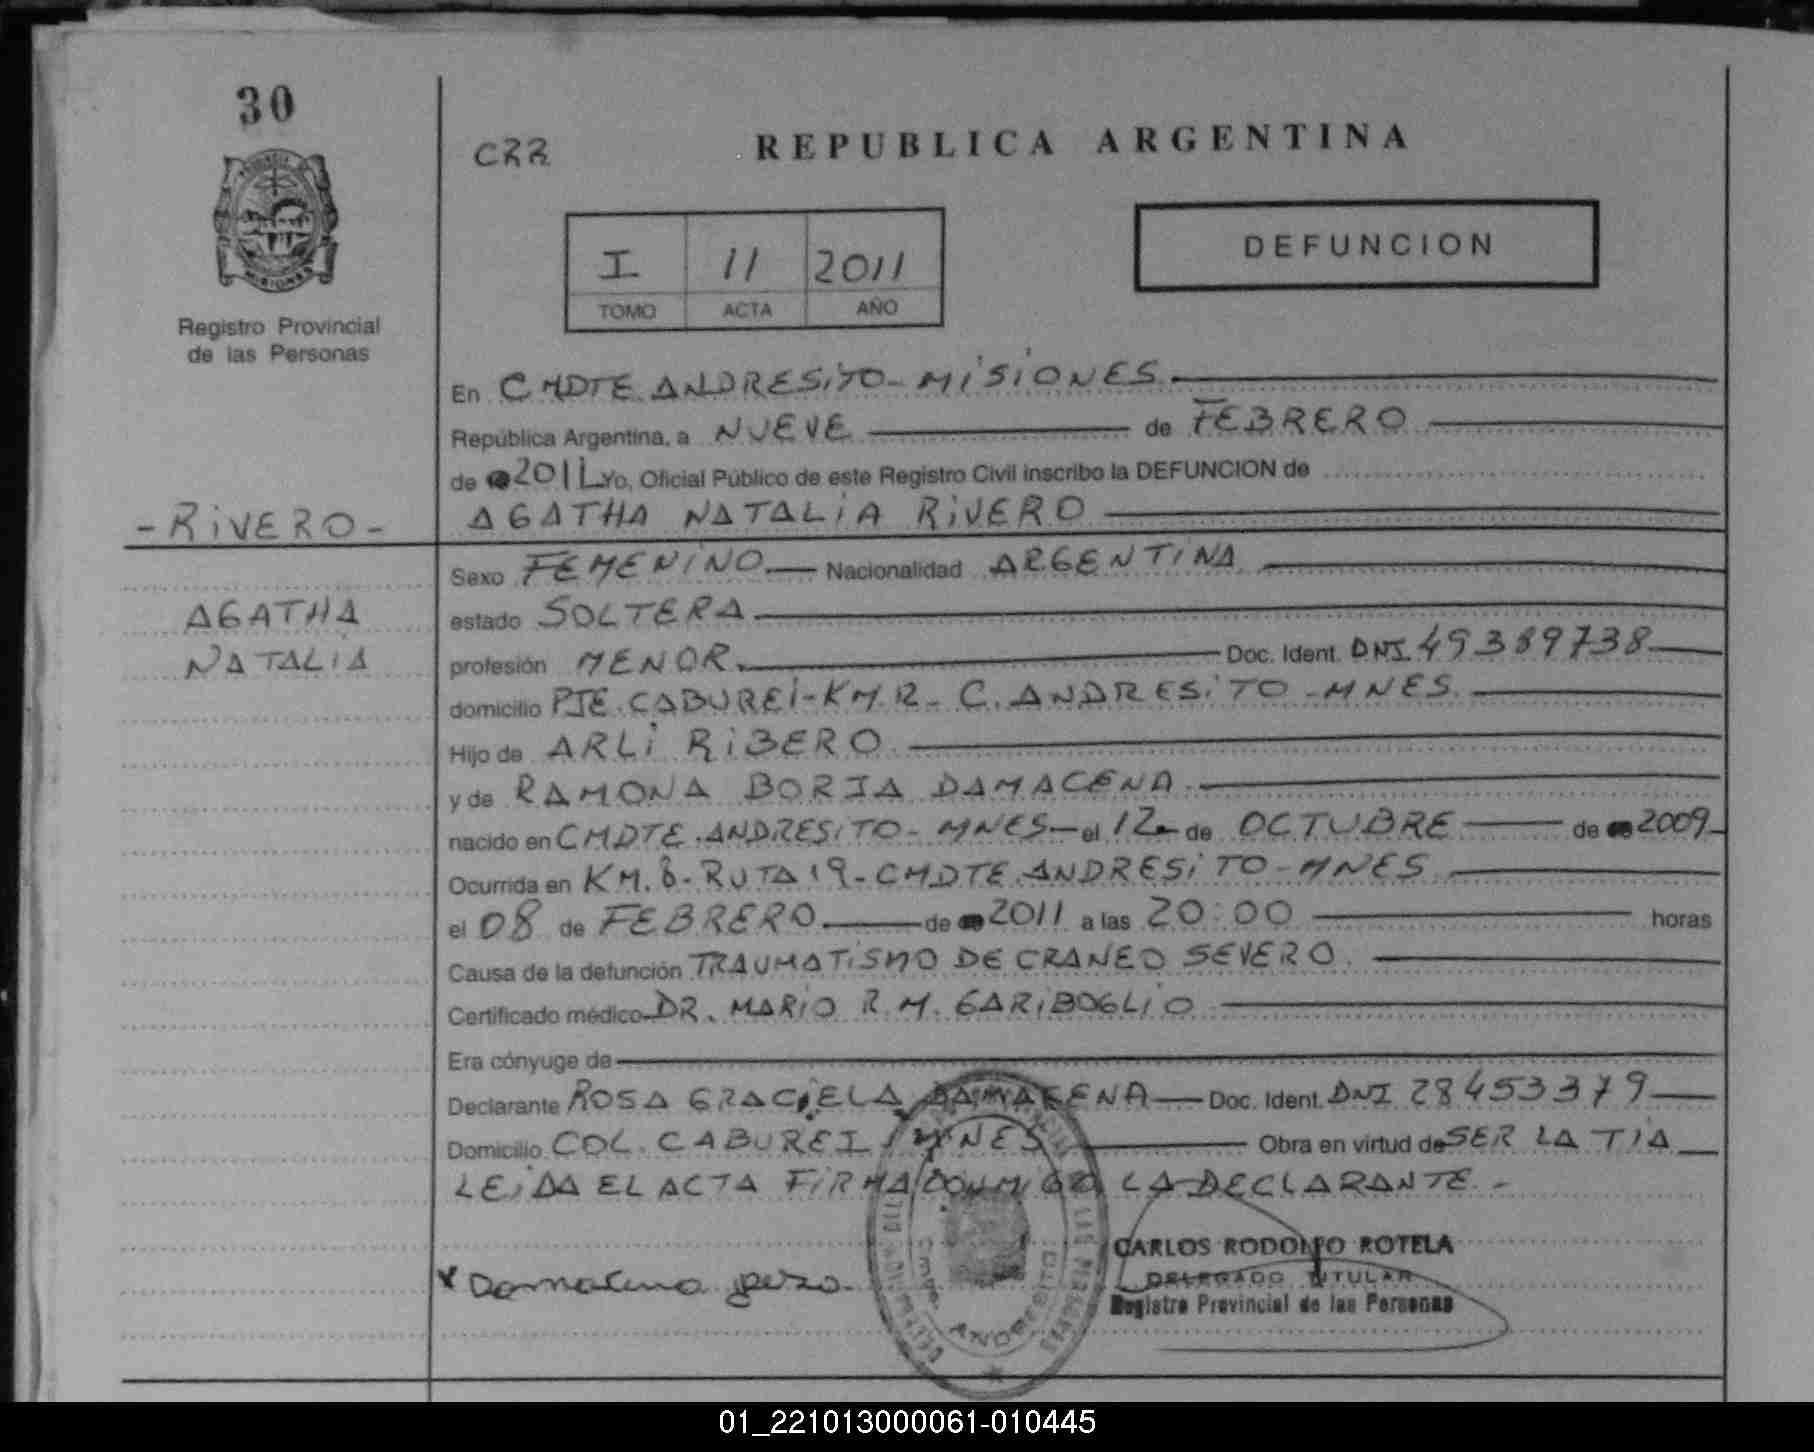 30
MISIONES
Registro Provincial
de las Personas
CRR
REPUBLICA ARGENTINA
I 11 2011
TOMO ACTA AÑO
DEFUNCION
En CMDTE. ANDRESITO - MISIONES
República Argentina, a NUEVE de FEBRERO
de 2011 Yo, Oficial Público de este Registro Civil inscribo la DEFUNCION de
- RIVERO -
AGATHA NATALIA RIVERO
Sexo FEMENINO Nacionalidad ARGENTINA
AGATHA
NATALIA
estado SOLTERA
profesión MENOR. Doc. Ident. DNI 49389738
domicilio PJE. CABUREI - KM. 12 - C. ANDRESITO - MNES.
Hijo de ARLI RIBERO
y de RAMONA BORJA DAMACENA
nacido en CMDTE. ANDRESITO - MNES - el 12 de OCTUBRE de 2009
Ocurrida en KM. 8 - RUTA 19 - CMDTE. ANDRESITO - MNES
el 08 de FEBRERO de 2011 a las 20:00 horas
Causa de la defunción TRAUMATISMO DE CRANEO SEVERO.
Certificado médico DR. MARIO R. M. GARIBOGLIO
Era cónyuge de
Declarante ROSA GRACIELA DAMACENA Doc. Ident. DNI 28453379
Domicilio COL. CABUREI / MNES Obra en virtud de SER LA TIA
LEIDA EL ACTA FIRMA CONMIGO LA DECLARANTE. -
ANDRESITO
CARLOS RODOLFO ROTELA
DELEGADO TITULAR
Registro Provincial de las Personas
01_221013000061-010445